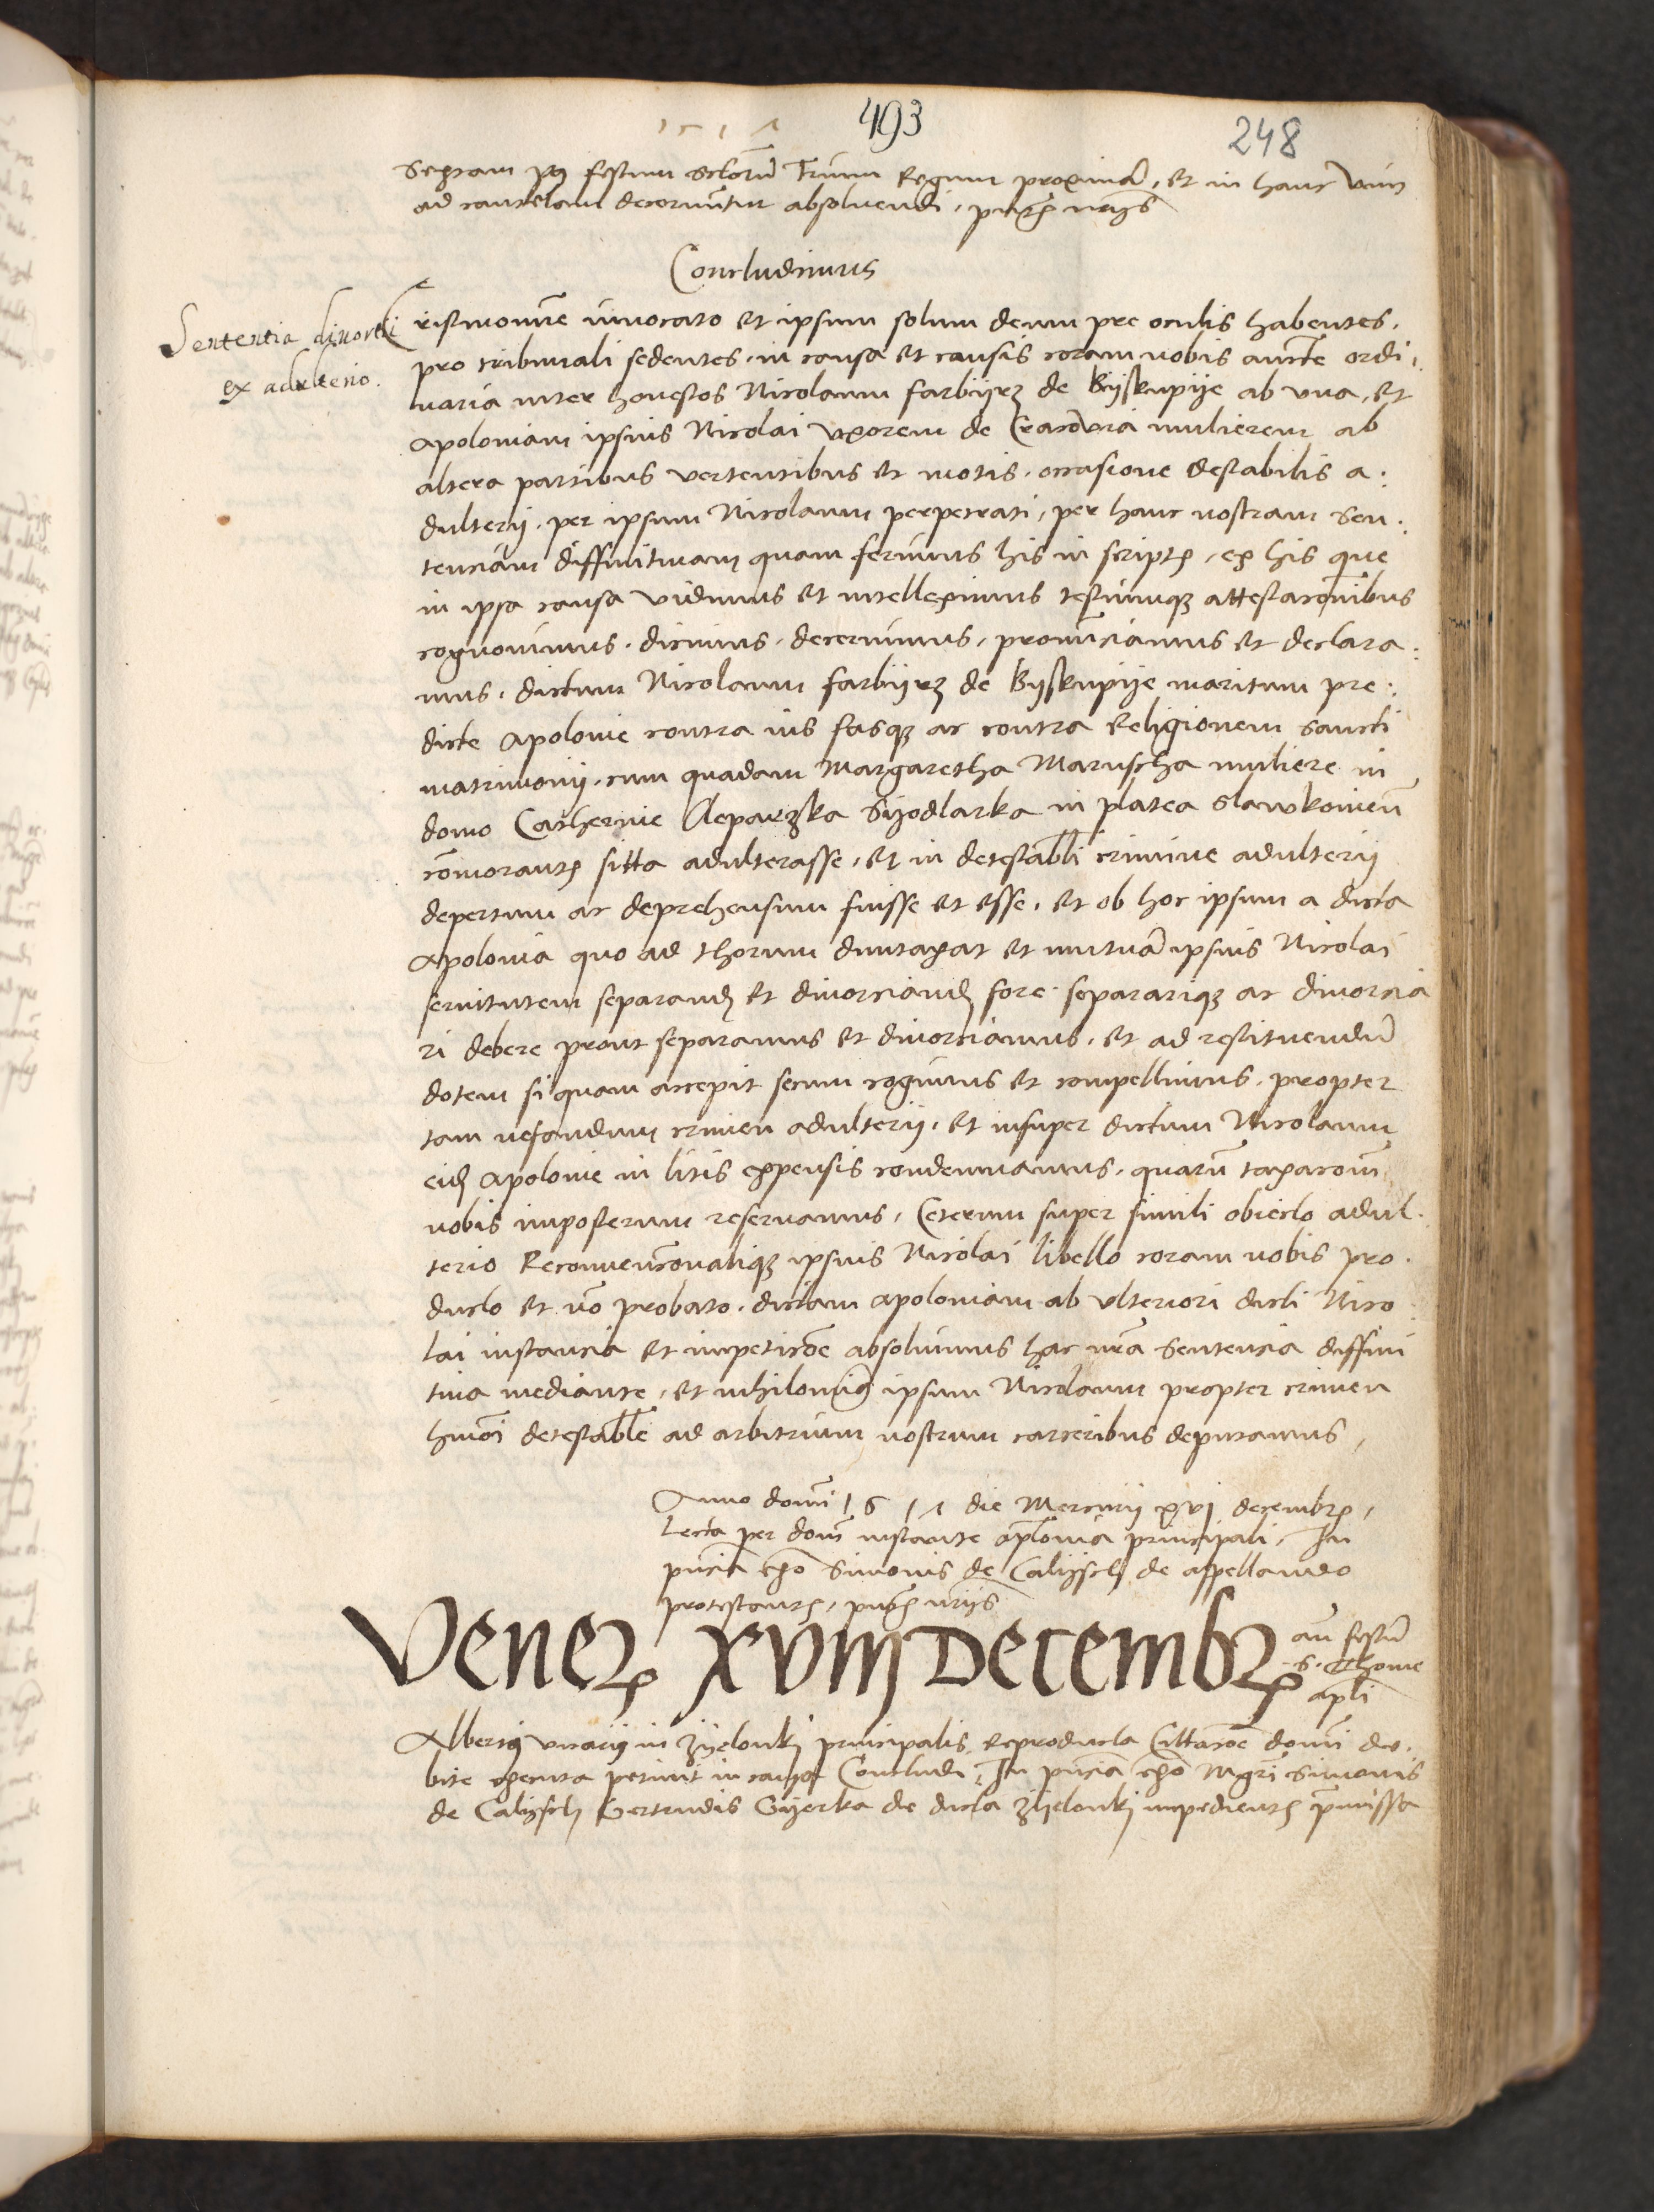 1 5 1 1
493
248
Sextam post festum Sctorum Trium Regum proximam, et in hanc vim
ad cautelam decernuntur absolvendi, puti nrijs
Concludimus
Sententia divorcii
ex adulterio.
Cristi nomine invocato et ipsum solum deum pre oculis habentes,
pro tribunali sedentes, in causa et causis coram nobis aucte ordi,
naria inter honestos Nicolaum farbijrz de Bijskupije ab una, et
Apoloniam ipsius Nicolai uxorem de Cracovia mulierem ab
altera partibus vertentibus et motis, occasione destabilis a:
dulterij, per ipsum Nicolaum perpetrati, per hanc nostram sen:
tenciam diffinitivam quam ferimus his in scriptis, ex his que
in ipsa causa vidimus et intelleximus testiumque attestacionibus
cognovimus, dicimus, decernimus, pronunciamus et declara:
mus, dictum Nicolaum farbijrz de Bijskupije maritum pre:
dicte Apolonie contra ius fasque ac contra Religionem sancti
matrimonij, cum quadam Margaretha Maruscha muliere in
domo Catherine Cleparzka Sijodlarka in platea Slawkovien
commorantis sitta adulterasse, et in detestabili crimine adulterij
depertum ac deprehensum fuisse et esse, et ob hoc ipsum a dicta
Apolonia quo ad thorum duntaxat et mutuam ipsius Nicolai
servitutem separandum et divorciandum fore separarique ac divorcia
ri debere prout separamus et divorciamus, et ad restituendum
dotem si quam accepit secum cogimus et compellimus, propter
tam nefandum crimen adulterij, et insuper dictum Nicolaum
eidem Apolonie in litis expensis condemnamus, quarum taxacionem
nobis imposterum reservamus, Ceterum super simili obiecto adul.
terio Reconvencionalique ipsius Nicolai libello coram nobis pro.
ducto et non probato, dictam Apoloniam ab ulteriori dicti Nico
lai instancia et impeticione absolvimus hac nra sentencia diffini
tiva mediante, et nihilominus ipsum Nicolaum propter crimen
hmoi detestabile ad arbitrium nostrum carceribus deputamus,
Anno domini 1 5 1 1 die Mercurij xvj decembris,
Lecta per dominum instante Apolonia principali, In
pncia ... Simonis de Calijsch de appellando
protestantis, pntibus nrijs
Veneris xviij Decembris
ante festum
S. Thome
apli
Albertus vicarius in Zijelonki principalis, Reproducta Cittacione domini de.
bite executa petivit in causa Concludi, In pncia ... Mgri Simonis
de Calijsch Gertrudis Gijerka de dicta Zijelonki impedientis premissa